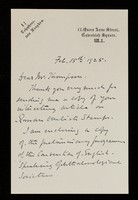 11, Queen Anne Street,
Cavendish Square,
W.1.
Feb. 15th 1925.
Dear Mr Thompson,
Thank you very much for
sending me a copy of your
interesting article on
Roman Oculists' Stamps.
I am enclosing a copy
of the preliminary programme
of the Convention of English-
Speaking Ophthalmological
Societies.